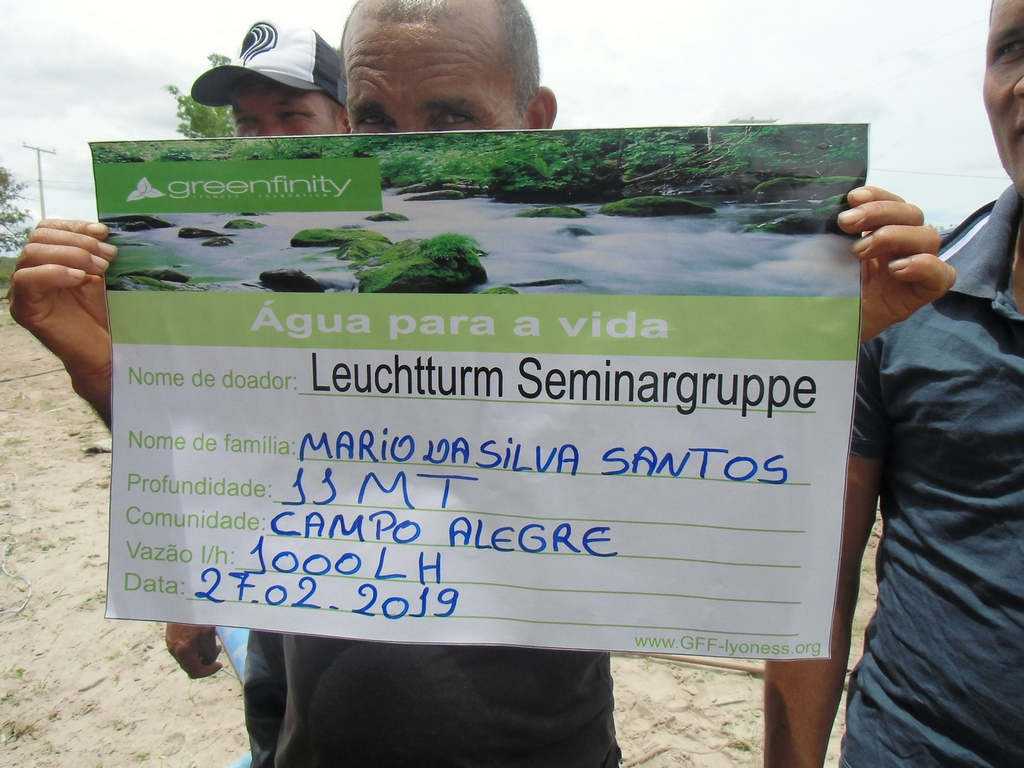 greenfinity
LYONESS FOUNDATION
Água para a vida
Nome de doador: Leuchtturm Seminargruppe
Nome de família: MARIO DA SILVA SANTOS
Profundidade: 11 MT
Comunidade: CAMPO ALEGRE
Vazão l/h: 1000 LH
Data: 27.02.2019
www.GFF-lyoness.org